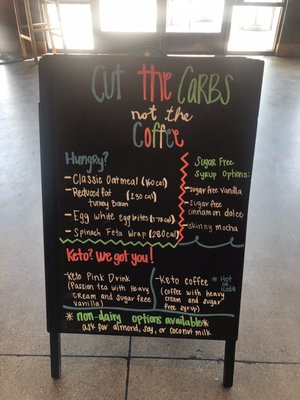 Cut the CARBS
not the
Coffee
Hungry?
- Classic Oatmeal (160 cal)
- Reduced fat (230 cal)
turkey Bacon
- Egg white eggbites (170 cal)
- Spinach Feta Wrap (280 cal)
Sugar Free
Syrup Options:
- sugar free vanilla
- sugar free
cinnamon dolce
- skinny mocha
Keto? We got you!
- Keto Pink Drink
(Passion tea with Heavy
cream and sugar free
vanilla)
- Keto coffee
(coffee with heavy
cream and sugar
free syrup)
* Hot
or
Iced *
* non-dairy options available *
ask for almond, soy, or coconut milk